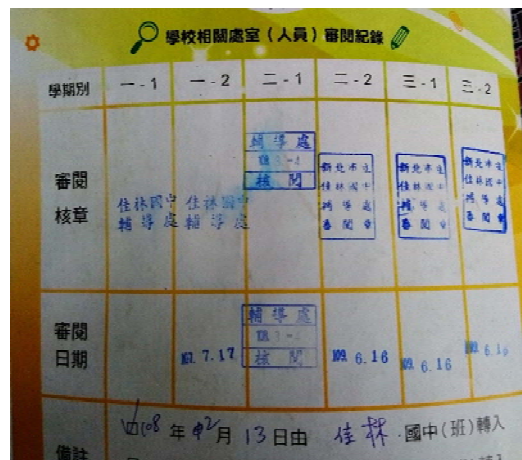 學校相關處室(人員)審閱紀錄
學期別 一-1 一-2 二-1 二-2 三-1 三-2
審閱核章
佳林國中 輔導處
佳林國中 輔導處
輔導處
核閱
新北市立 佳林國中 輔導處 審閱章
新北市立 佳林國中 輔導處 審閱章
新北市立 佳林國中 輔導處 審閱章
審閱日期
7.17
輔導處
核閱
109. 6.16
109. 6.16
109. 6.16
備註
108年 月13日由 佳林 國中(班)轉入
轉入